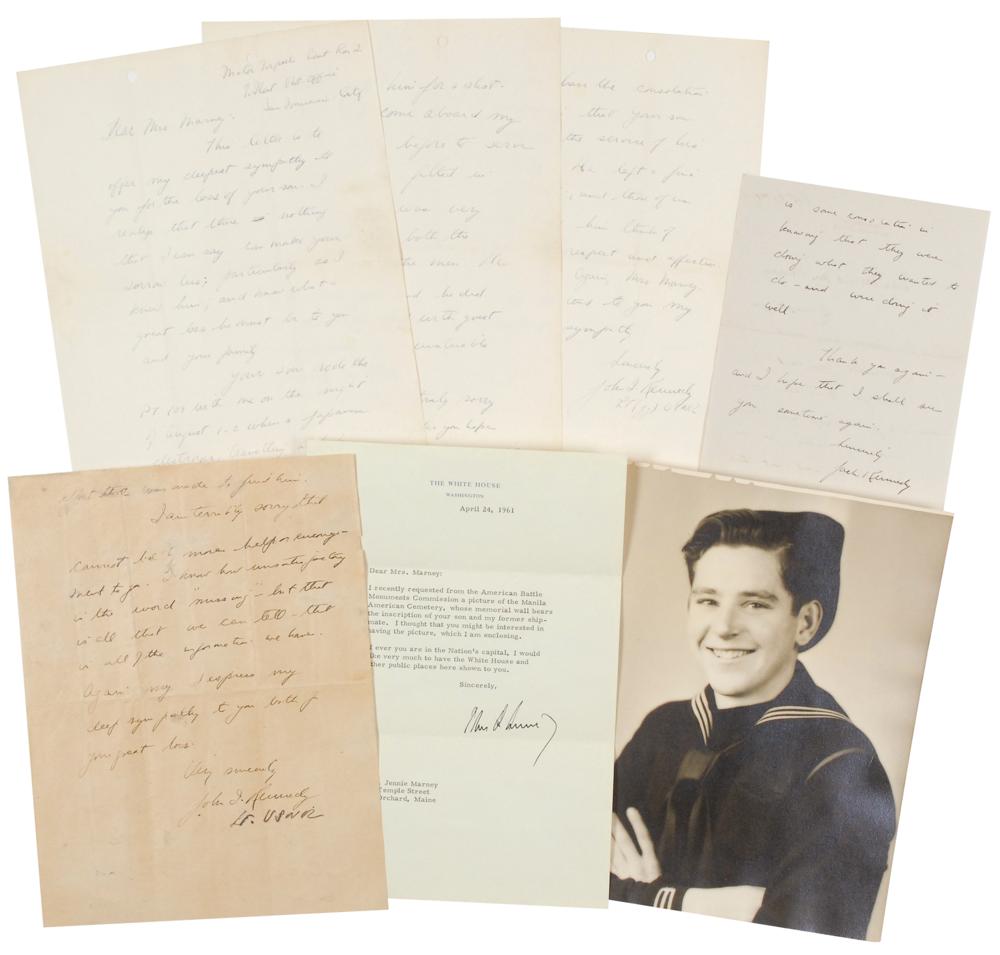 Motor Torpedo Boat Ron 2
Fleet Post Office
San Francisco
Dear Mrs Marney:
This letter is to
offer my deepest sympathy to
you for the loss of your son. I
realize that there is nothing
that I can say can make your
sorrow less; particularly as I
knew him, and know what a
great loss he must be to you
and your family
Your son rode the
PT 109 with me on the night
of August 1-2 when a Japanese
destroyer, travelling
him for a short
come aboard my
before to serve
filled in
was very
both the
the men. He
he did
with great
invaluable
truly sorry
you hope
have the consolation
that your son
the service of his
He left a fine
and those of us
him think of
respect and affection
Again, Mrs Marney
send to you my
sympathy
Sincerely
John F. Kennedy
Lt (jg) USNR
is some consolation in
knowing that they were
doing what they wanted to
do - and were doing it
well.
Thank you again -
and I hope that I shall see
you sometime again.
Sincerely
Jack Kennedy
was made to find him.
I am terribly sorry that I
cannot be of more help or encourage-
ment to you. I know how unsatisfactory
is the word "missing" - but that
is all that we can tell - that
is all of the information we have.
Again may I express my
deep sympathy to you both for
your great loss.
Very sincerely
John F. Kennedy
Lt. USNR
THE WHITE HOUSE
WASHINGTON
April 24, 1961
Dear Mrs. Marney:
I recently requested from the American Battle
Monuments Commission a picture of the Manila
American Cemetery, whose memorial wall bears
the inscription of your son and my former ship-
mate. I thought that you might be interested in
having the picture, which I am enclosing.
I ever you are in the Nation's capital, I would
ke very much to have the White House and
ther public places here shown to you.
Sincerely,
Jennie Marney
emple Street
Orchard, Maine